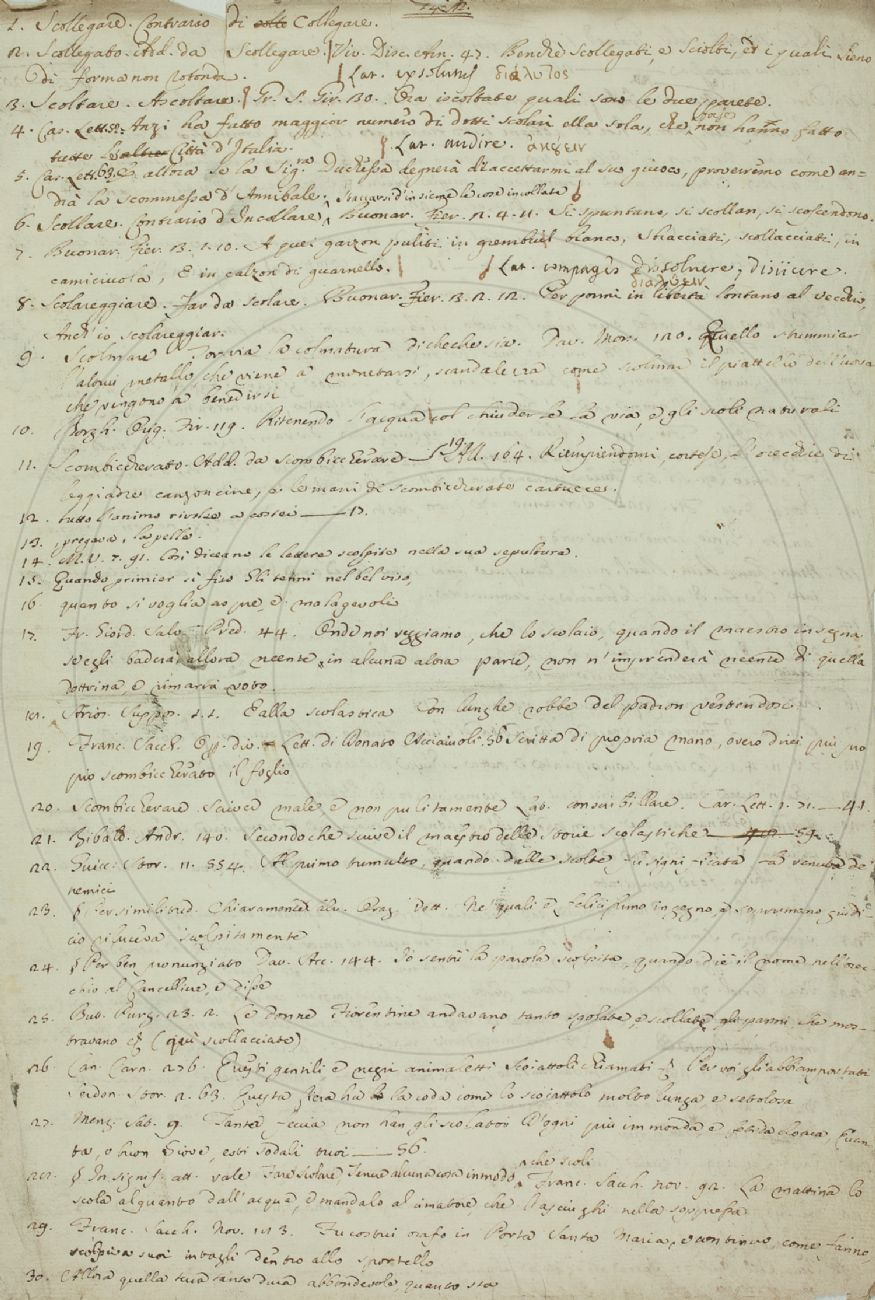 1. Scollegare. Contrario di Collegare.
2. Scollegato. Add. da Scollegare. Viv. Disc. Arn. 47. Benchè scollegati, e sciolti, ed i quali sieno
di forma non rotonda. Lat. exsolutus διάλυτος
3. Scoltare. Ascoltare. Gr. S. Gir. 30. Ora iscoltate quali sono le due parete.
4. Car. Lett. Anzi ha fatto maggior numero di dotti scolari ella sola, che non hanno fatto
tutte le altre Città d'Italia. Lat. audire. ἀκούειν
5. Car. Lett. 63. E allora se la Sig.ra Duchessa degnerà d'accettarmi al suo giuoco, proveremo come an=
drà la scommessa d'Annibale. Staccarsi d'insieme le cose incollate
6. Scollare. Contrario d'Incollare. Buonar. Fier. 2. 4. 11. Si spuntano, si scollan, si scoscendono.
7. Buonar. Fier. 3. 1. 10. A quei garzon puliti in grembiul bianco, Sbracciati, scollacciati, in
camiciuola, E in calzon di guarnello. Lat. compages dissolvere, disiicere.
8. Scolareggiare. Far da scolare. Buonar. Fier. 3. 2. 12. Per porvi in libertà lontano al vecchio,
Anch'io scolareggiar.
9. Scolmare Torre la colmatura di checchessia. Dav. Mon. 120. Quello stremmiar
d'alcun metallo, che viene a monetarsi, scandalezza come scolmar il piattello dell'uova
che vengono a benedirsi
10. Borgh. Orig. Fir. 119. Ritenendo l'acqua col chiuderle la via, e gli scoli naturali
11. Scombiccherato. Add. da Scombiccherare All. 164. Riempiendomi, cortese, l'orecchie di
leggiadre canzoncine, e le mani di scombiccherate cartucce.
12. tutto l'animo rivolse a costei 17.
13. pregava, la pelle.
14. M. V. 7. 91. Così diceano le lettere scolpite nella sua sepoltura.
15. Quando primier si fiso Gli tenni nel bel viso,
16. quanto si voglia aspre, e malagevoli
17. Fr. Giord. Salv. Pred. 44. Onde noi veggiamo, che lo scolaio, quando il maestro insegna
s'egli baderà allora neente in alcuna altra parte, non n'imprenderà neente di quella
dottrina, e rimarrà voto.
18. Arios. Suppos. 1. 1. E alla scolastica Con lunghe robbe del padron vestendosi.
19. Franc. Sacch. Op. div. Lett. di Donato Acciaiuoli 56 Scritta di propria mano, overo direi più pro
prio scombiccherato il foglio
20. Scombiccherare. Scivere male e non pulitamente Lat. conscribillare. Car. Lett. 1. 71. 41.
21. Ribald. Andr. 140. Secondo che scrive il maestro delle storie scolastiche 59.
22. Guicc. Stor. 11. 554. Al primo tumulto, quando dalle scolte fu significata la venuta de'
nemici
23. § Per similitud. Chiaramonti Oraz. Dott. Ne' quali è felicissimo ingegno, e soprumano giudi=
cio riluceva iscolpitamente
24. § Per ben pronunziato Dav. Acc. 144. Io sentii la parola scolpita, quando diè il nome nell'orec=
chio al Cancelliere, e disse
25. But. Purg. 23. 2. Le donne Fiorentine andavano tanto sgolate, e scollate gli panni che mos=
travano (qui scollacciate)
26. Can. Carn. 276. Questi gentili e negri animaletti Scoiattoli chiamati Per voi gli abbiam portati
Serdon. Stor. 2. 63. Questa fiera ha la coda come lo scoiattolo molto lunga, e setolosa
27. Menz. Sat. 9. Tanta feccia non han gli scolatoi D'ogni più immonda e fetida cloaca Quan
ta, o buon Giove, esti sodali tuoi 56.
28. § In signif. att. vale Fare scolare, Tenere alcuna cosa in modo che scoli Franc. Sacch. nov. 92. La mattina lo
scola alquanto dall'acqua, e mandalo al cimatore che l'asciughi nella soppressa.
29. Franc. Sacch. Nov. 113. Fu costui orafo in Porta Santa Maria, e continuo, come fanno
scolpiva suoi intagli dentro allo sportello
30. Allora quella terra tanto dura abbondevole, quanto sta